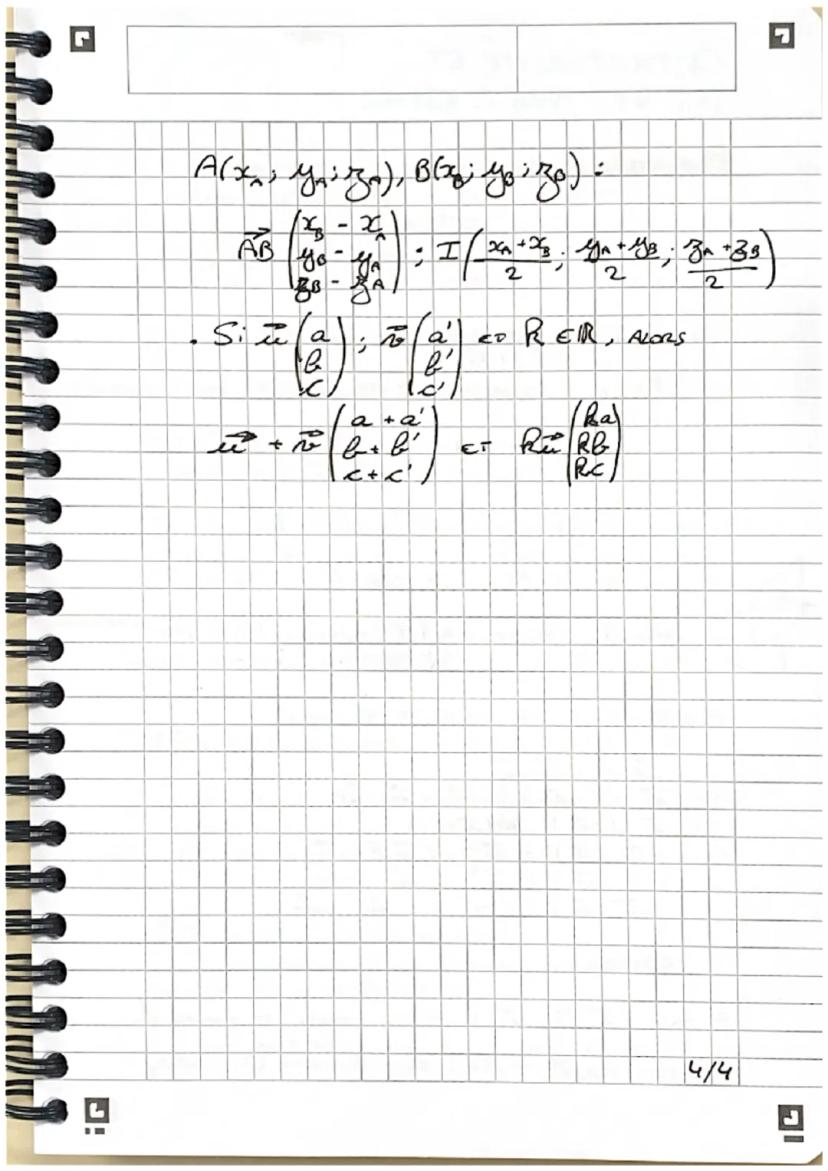 A(x_A; y_A; z_A), B(x_B; y_B; z_B) :
\vec{AB} \begin{pmatrix} x_B - x_A \\ y_B - y_A \\ z_B - z_A \end{pmatrix} ; I \left( \frac{x_A + x_B}{2} ; \frac{y_A + y_B}{2} ; \frac{z_A + z_B}{2} \right)
. Si \vec{u} \begin{pmatrix} a \\ b \\ c \end{pmatrix} ; \vec{v} \begin{pmatrix} a' \\ b' \\ c' \end{pmatrix} ET k ∈ ℝ, ALORS
\vec{u} + \vec{v} \begin{pmatrix} a + a' \\ b + b' \\ c + c' \end{pmatrix} ET k\vec{u} \begin{pmatrix} ka \\ kb \\ kc \end{pmatrix}
4/4